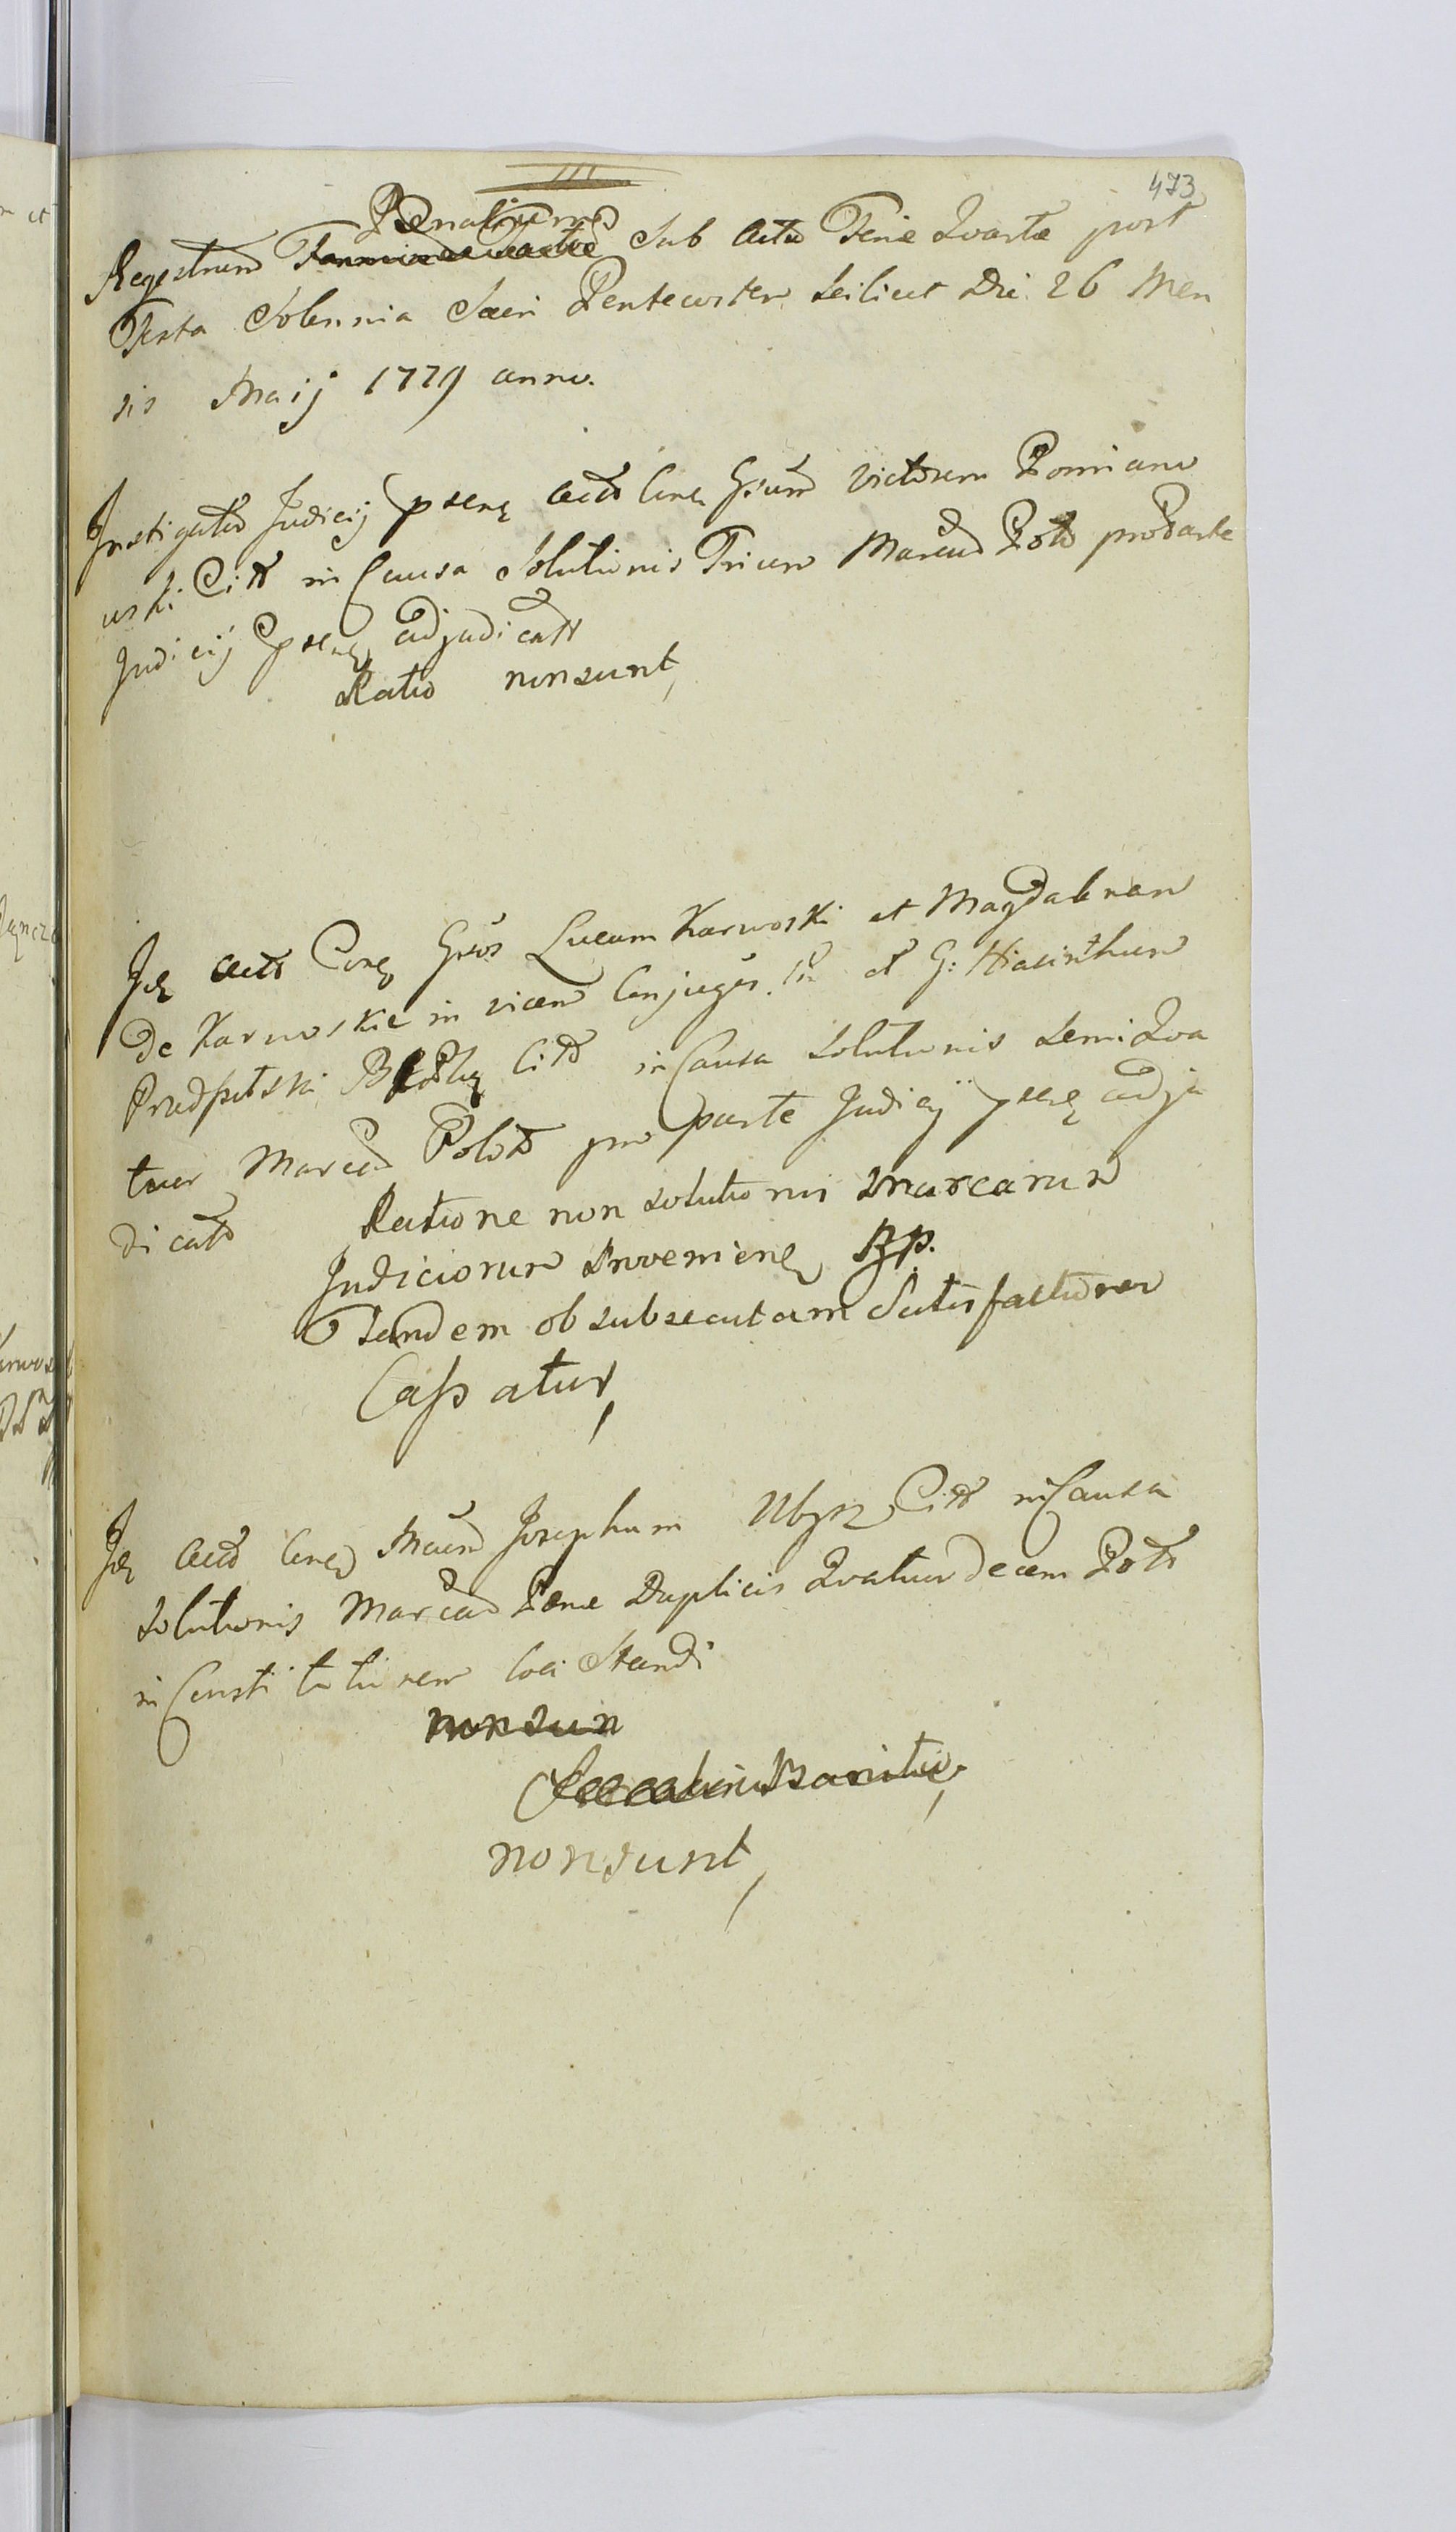 473
Pœnalium
Regestrum sub actu Feriæ Qvartæ post
Festa Solennia Sacri Pentecostes scilicet Die 26 Men
sis Maij 1779 anno.
Instigator Judicij psens actor Victorem Pomiano
wski Citt in Causa Solutionis Trium Marcar Polo pro parte
Judicij psens adjudicatt
Ratio non sunt,
actor Cong Gsos Lucam Karwoski et Magdalenam
de Karwoskie in vicem Conjuges et G: Hiacinthum
Citt in Causa Solutionis Semi Qva
tuor Marcar Polo pro parte Judicij psens adju
dicatt
Ratione non solutionis marcarum
Judiciorum
Tandem ob subsecutam Satisfactionem
Cassatur,
actor Josephum Ubysz Citt in Causa
Solutionis Marcar Pœnæ Duplicis Qvatuordecem Polo
in Constitutionem loci Standi
non sun
non sunt,